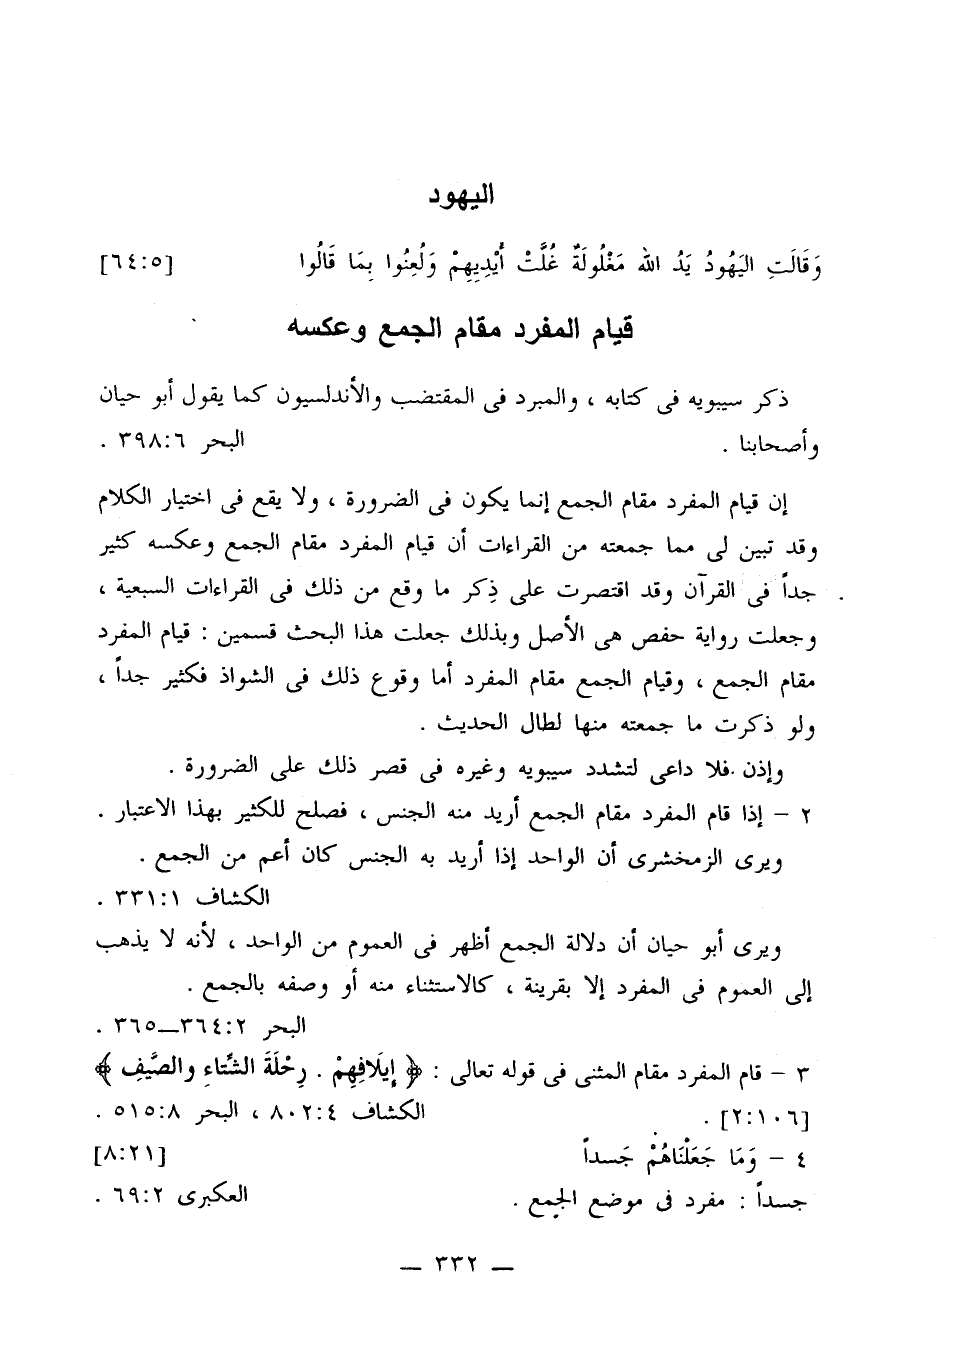 اليهود
وَقَالَتِ اليَهُودُ يَدُ الله مَغْلُولَةٌ غُلَّتْ أَيْدِيهِمْ وَلُعِنُوا بِمَا قَالُوا [٦٤:٥]
قيام المفرد مقام الجمع وعكسه
ذكر سيبويه فى كتابه ، والمبرد فى المقتضب والأندلسيون كما يقول أبو حيان
وأصحابنا . البحر ٣٩٨:٦ .
إن قيام المفرد مقام الجمع إنما يكون فى الضرورة ، ولا يقع فى اختيار الكلام
وقد تبين لى مما جمعته من القراءات أن قيام المفرد مقام الجمع وعكسه كثير
جداً فى القرآن وقد اقتصرت على ذِكر ما وقع من ذلك فى القراءات السبعية ،
وجعلت رواية حفص هى الأصل وبذلك جعلت هذا البحث قسمين : قيام المفرد
مقام الجمع ، وقيام الجمع مقام المفرد أما وقوع ذلك فى الشواذ فكثير جداً ،
ولو ذكرت ما جمعته منها لطال الحديث .
وإذن فلا داعى لتشدد سيبويه وغيره فى قصر ذلك على الضرورة .
٢ – إذا قام المفرد مقام الجمع أريد منه الجنس ، فصلح للكثير بهذا الاعتبار .
ويرى الزمخشرى أن الواحد إذا أريد به الجنس كان أعم من الجمع .
الكشاف ٣٣١:١ .
ويرى أبو حيان أن دلالة الجمع أظهر فى العموم من الواحد ، لأنه لا يذهب
إلى العموم فى المفرد إلا بقرينة ، كالاستثناء منه أو وصفه بالجمع .
البحر ٣٦٤:٢—٣٦٥ .
٣ – قام المفرد مقام المثنى فى قوله تعالى : ﴿ إِيلَافِهِمْ . رِحْلَةَ الشِّتَاءِ والصَّيَفِ ﴾
[٢:١٠٦] . الكشاف ٨٠٢:٤ ، البحر ٥١٥:٨ .
٤ – وَمَا جَعَلْنَاهُمْ جَسداً [٨:٢١]
جسداً : مفرد فى موضع الجمع . العكبرى ٦٩:٢ .
— ٣٣٢ —